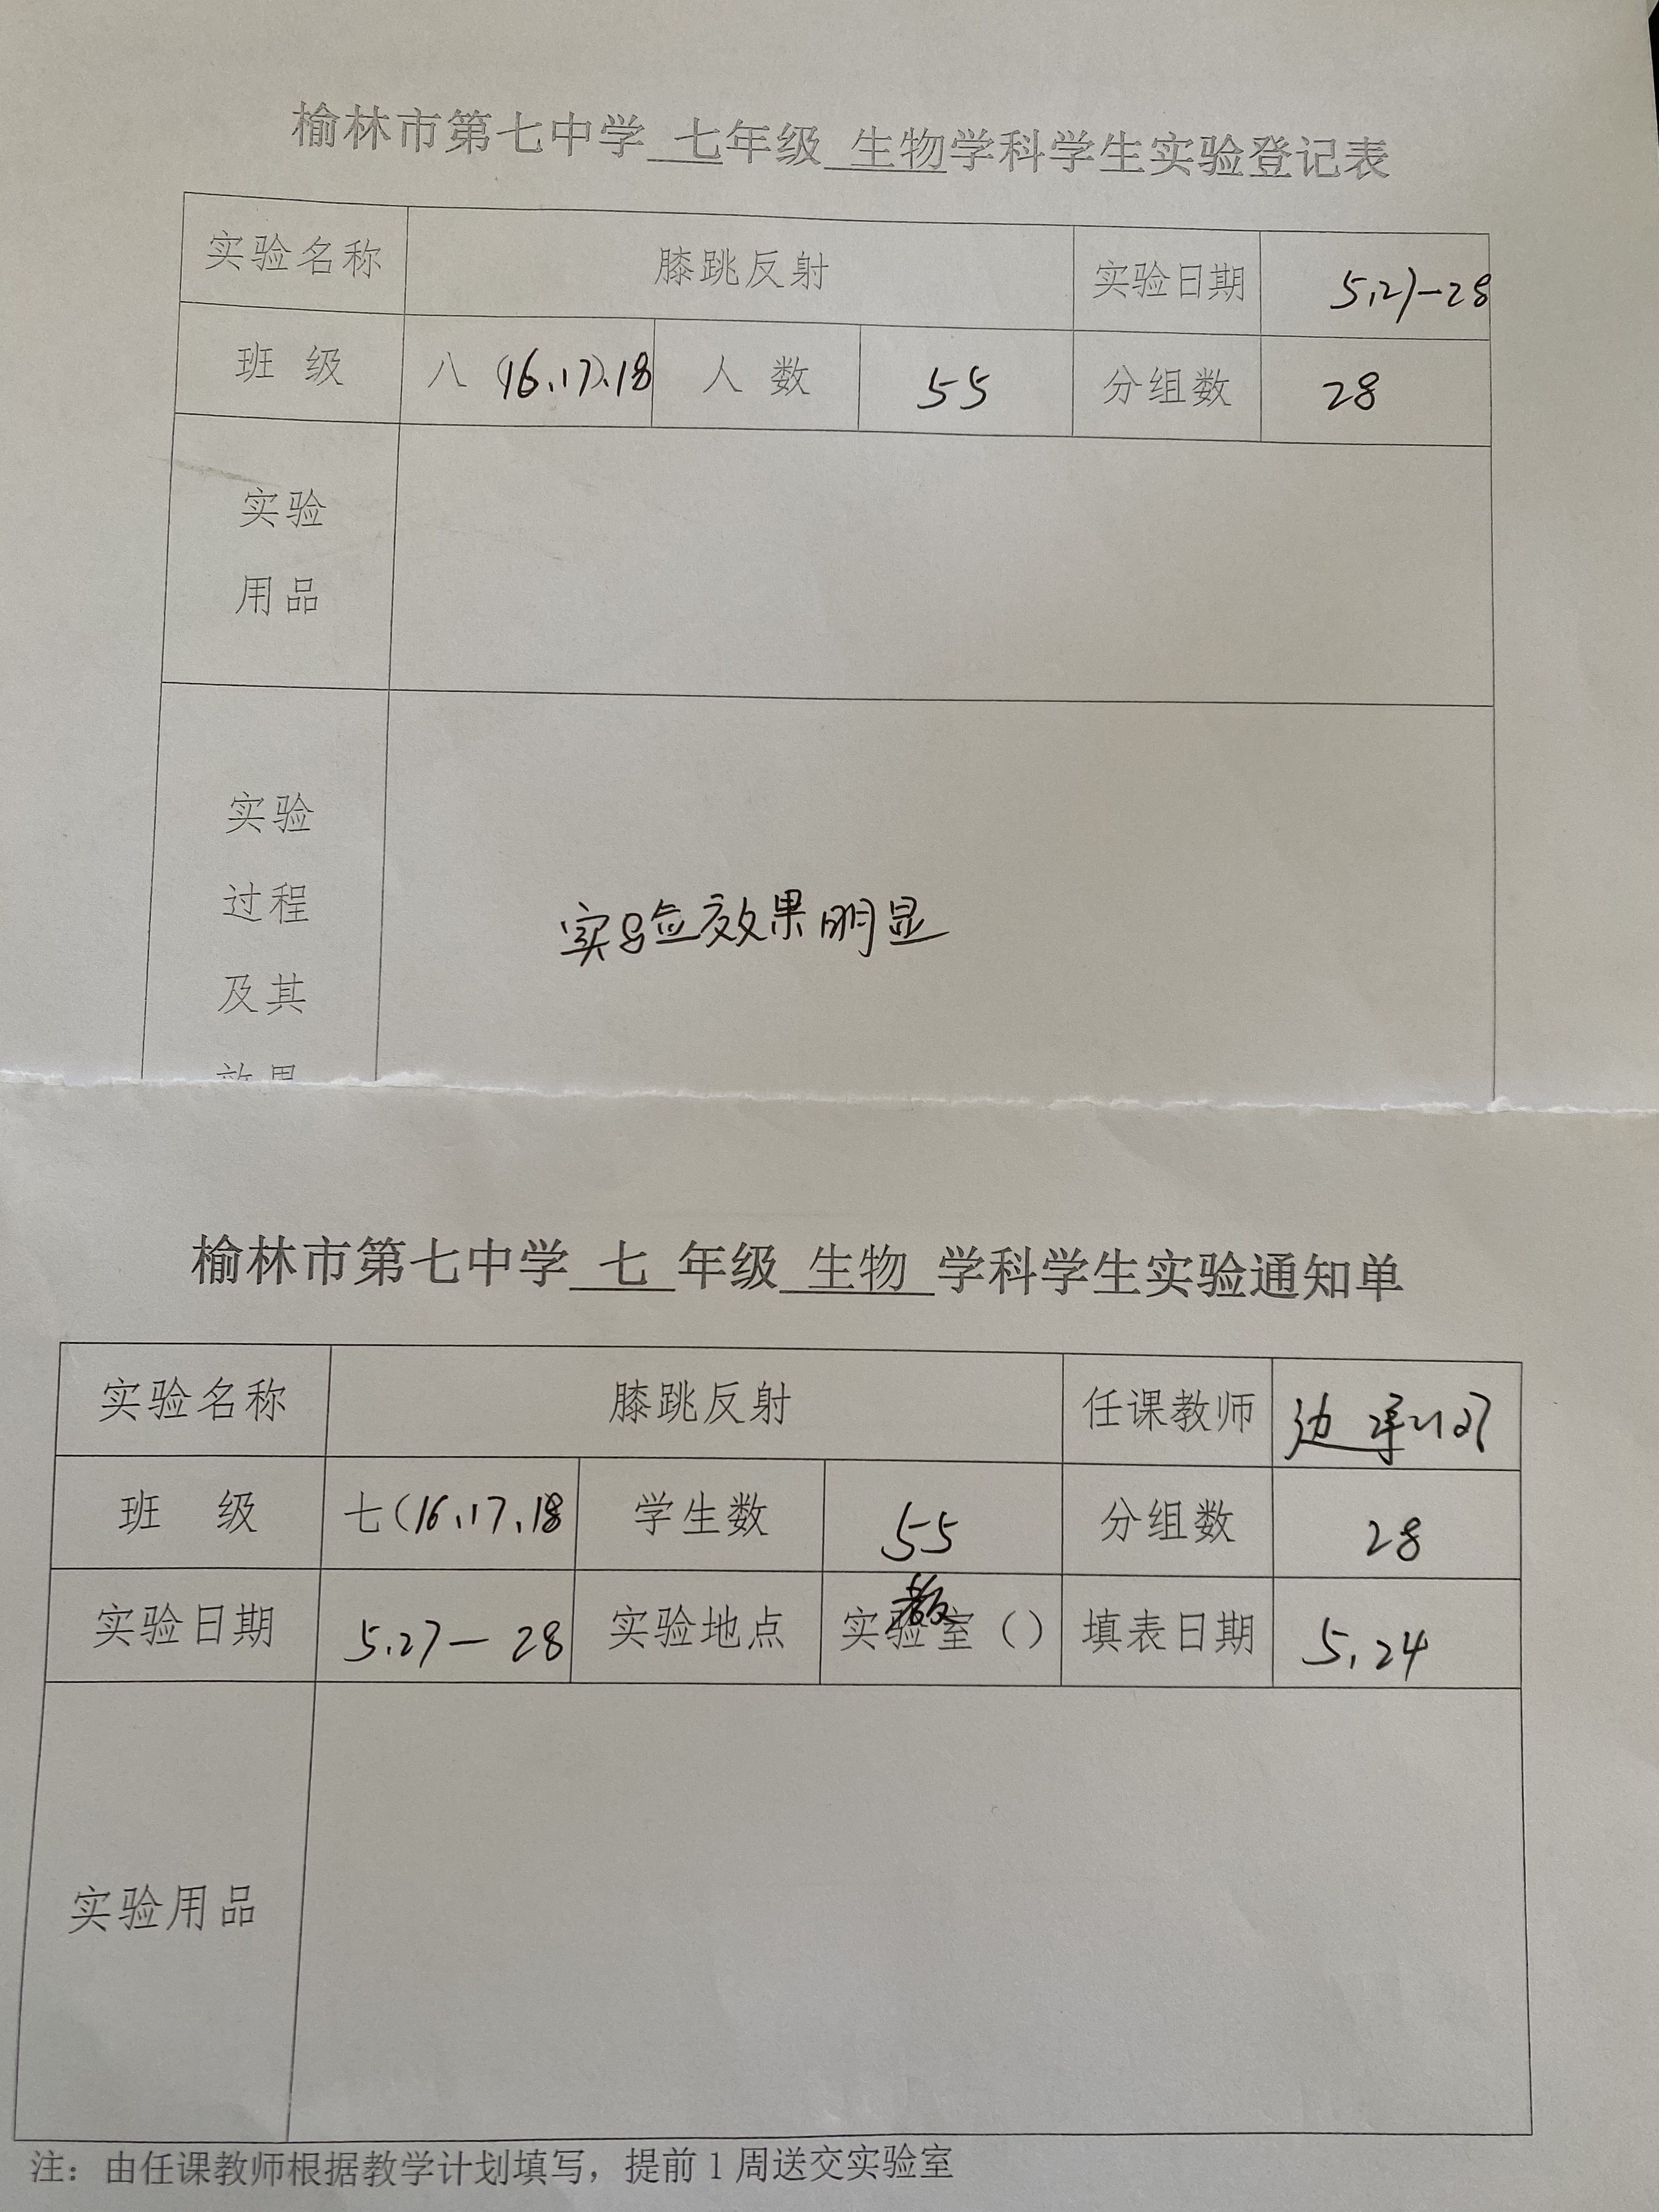 榆林市第七中学 七年级 生物学科学生实验登记表
实验名称 膝跳反射 实验日期 5.27-28
班 级 八 (16.17).18 人 数 55 分组数 28
实验
用品
实验
过程
及其
效果
实验效果明显
榆林市第七中学 七 年级 生物 学科学生实验通知单
实验名称 膝跳反射 任课教师 边
班 级 七(16.17.18 学生数 55 分组数 28
实验日期 5.27-28 实验地点 实验室() 教 填表日期 5.24
实验用品
注：由任课教师根据教学计划填写，提前1周送交实验室